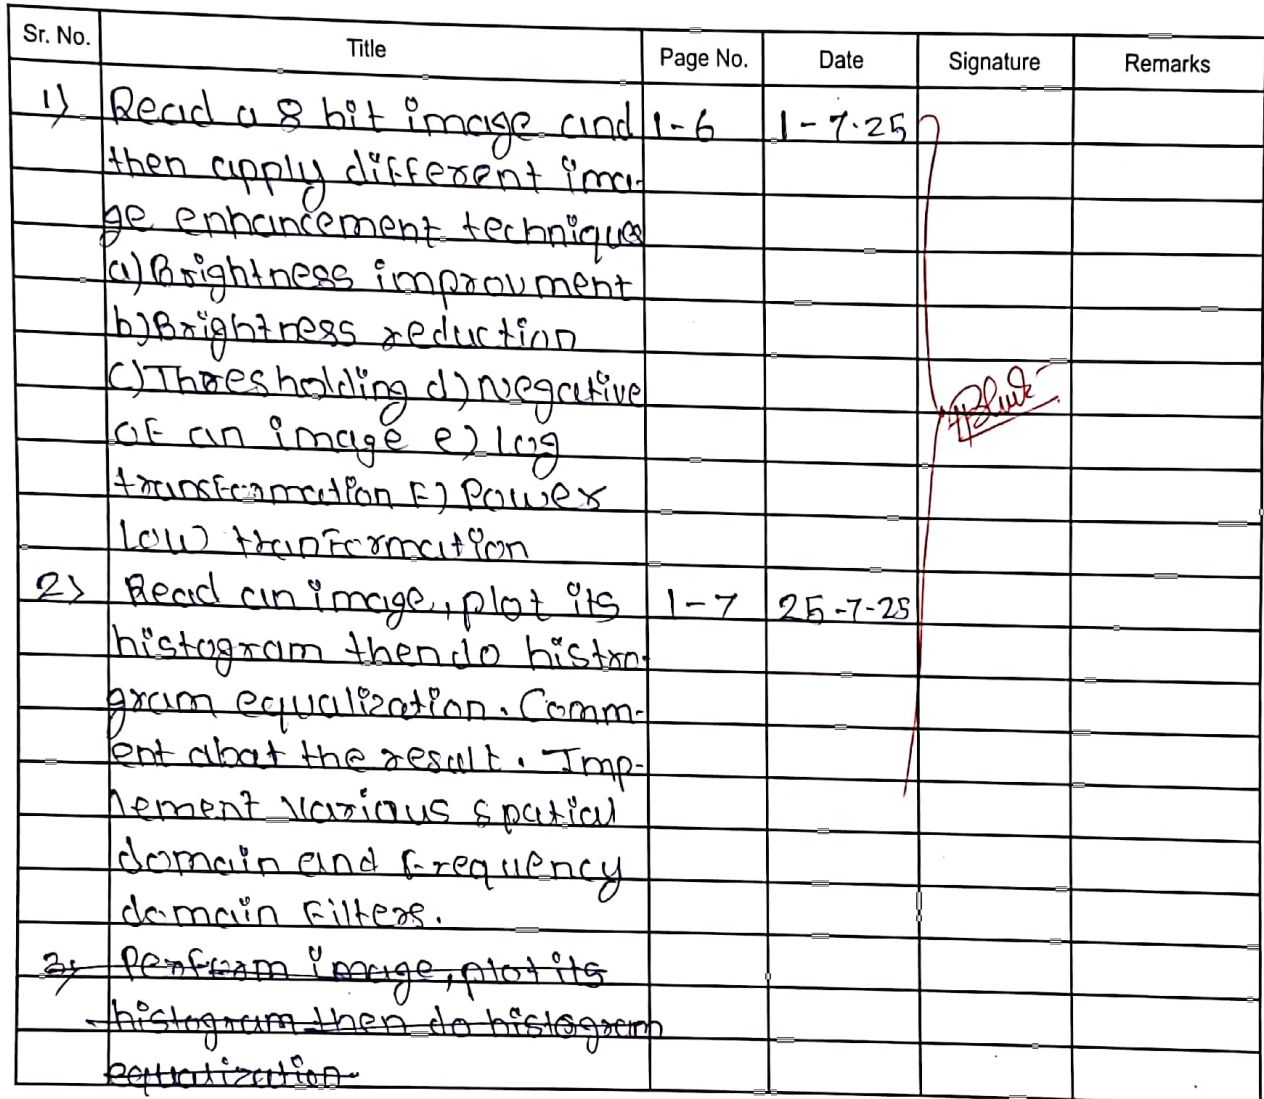 Sr. No. Title Page No. Date Signature Remarks
1) Read a 8 bit image and 1-6 1-7-25
then apply different ima-
ge enhancement techniques
a) Brightness improvment
b) Brightness reduction
c) Thresholding d) Negative
of an image e) log
transformation F) Power
Low tranformation
2) Read an image, plot its 1-7 25-7-25
histogram then do histro-
gram equalization. Comm-
ent abat the result. Imp-
lement various spatial
domain and frequency
domain Filters.
3) Perform image, plot its
histogram then do histogram
equalization.